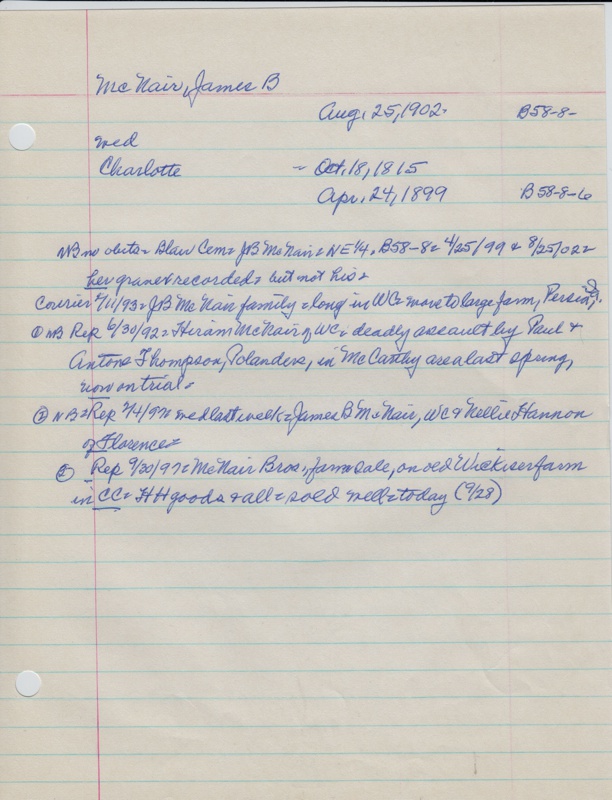 McNair, James B
Aug. 25, 1902. B58-8-
med
Charlotte - Oct. 18, 1815
Apr. 24, 1899 B58-8-6
NB no obits = Blair Cem = JB McNair = NE 1/4, B58-8 = 4/25/99 & 8/25/02 =
her grave & recorded = but not his =
Courier /11/93 = JB McNair family = long in WC = move to large farm, Persia,
① NB Rep 6/30/92 = Hiram McNair of WC = deadly assault by Paul &
Antone Thompson, Polanders, in McCarthy area last spring,
now on trial =
② NB = Rep /4/97 = med last week = James B McNair, WC & Nellie Hannon
of Florence =
② Rep 9/30/97 = McNair Bros, farm sale, on old Wickiser farm
in CC = HH goods & all = sold well = today (9/28)